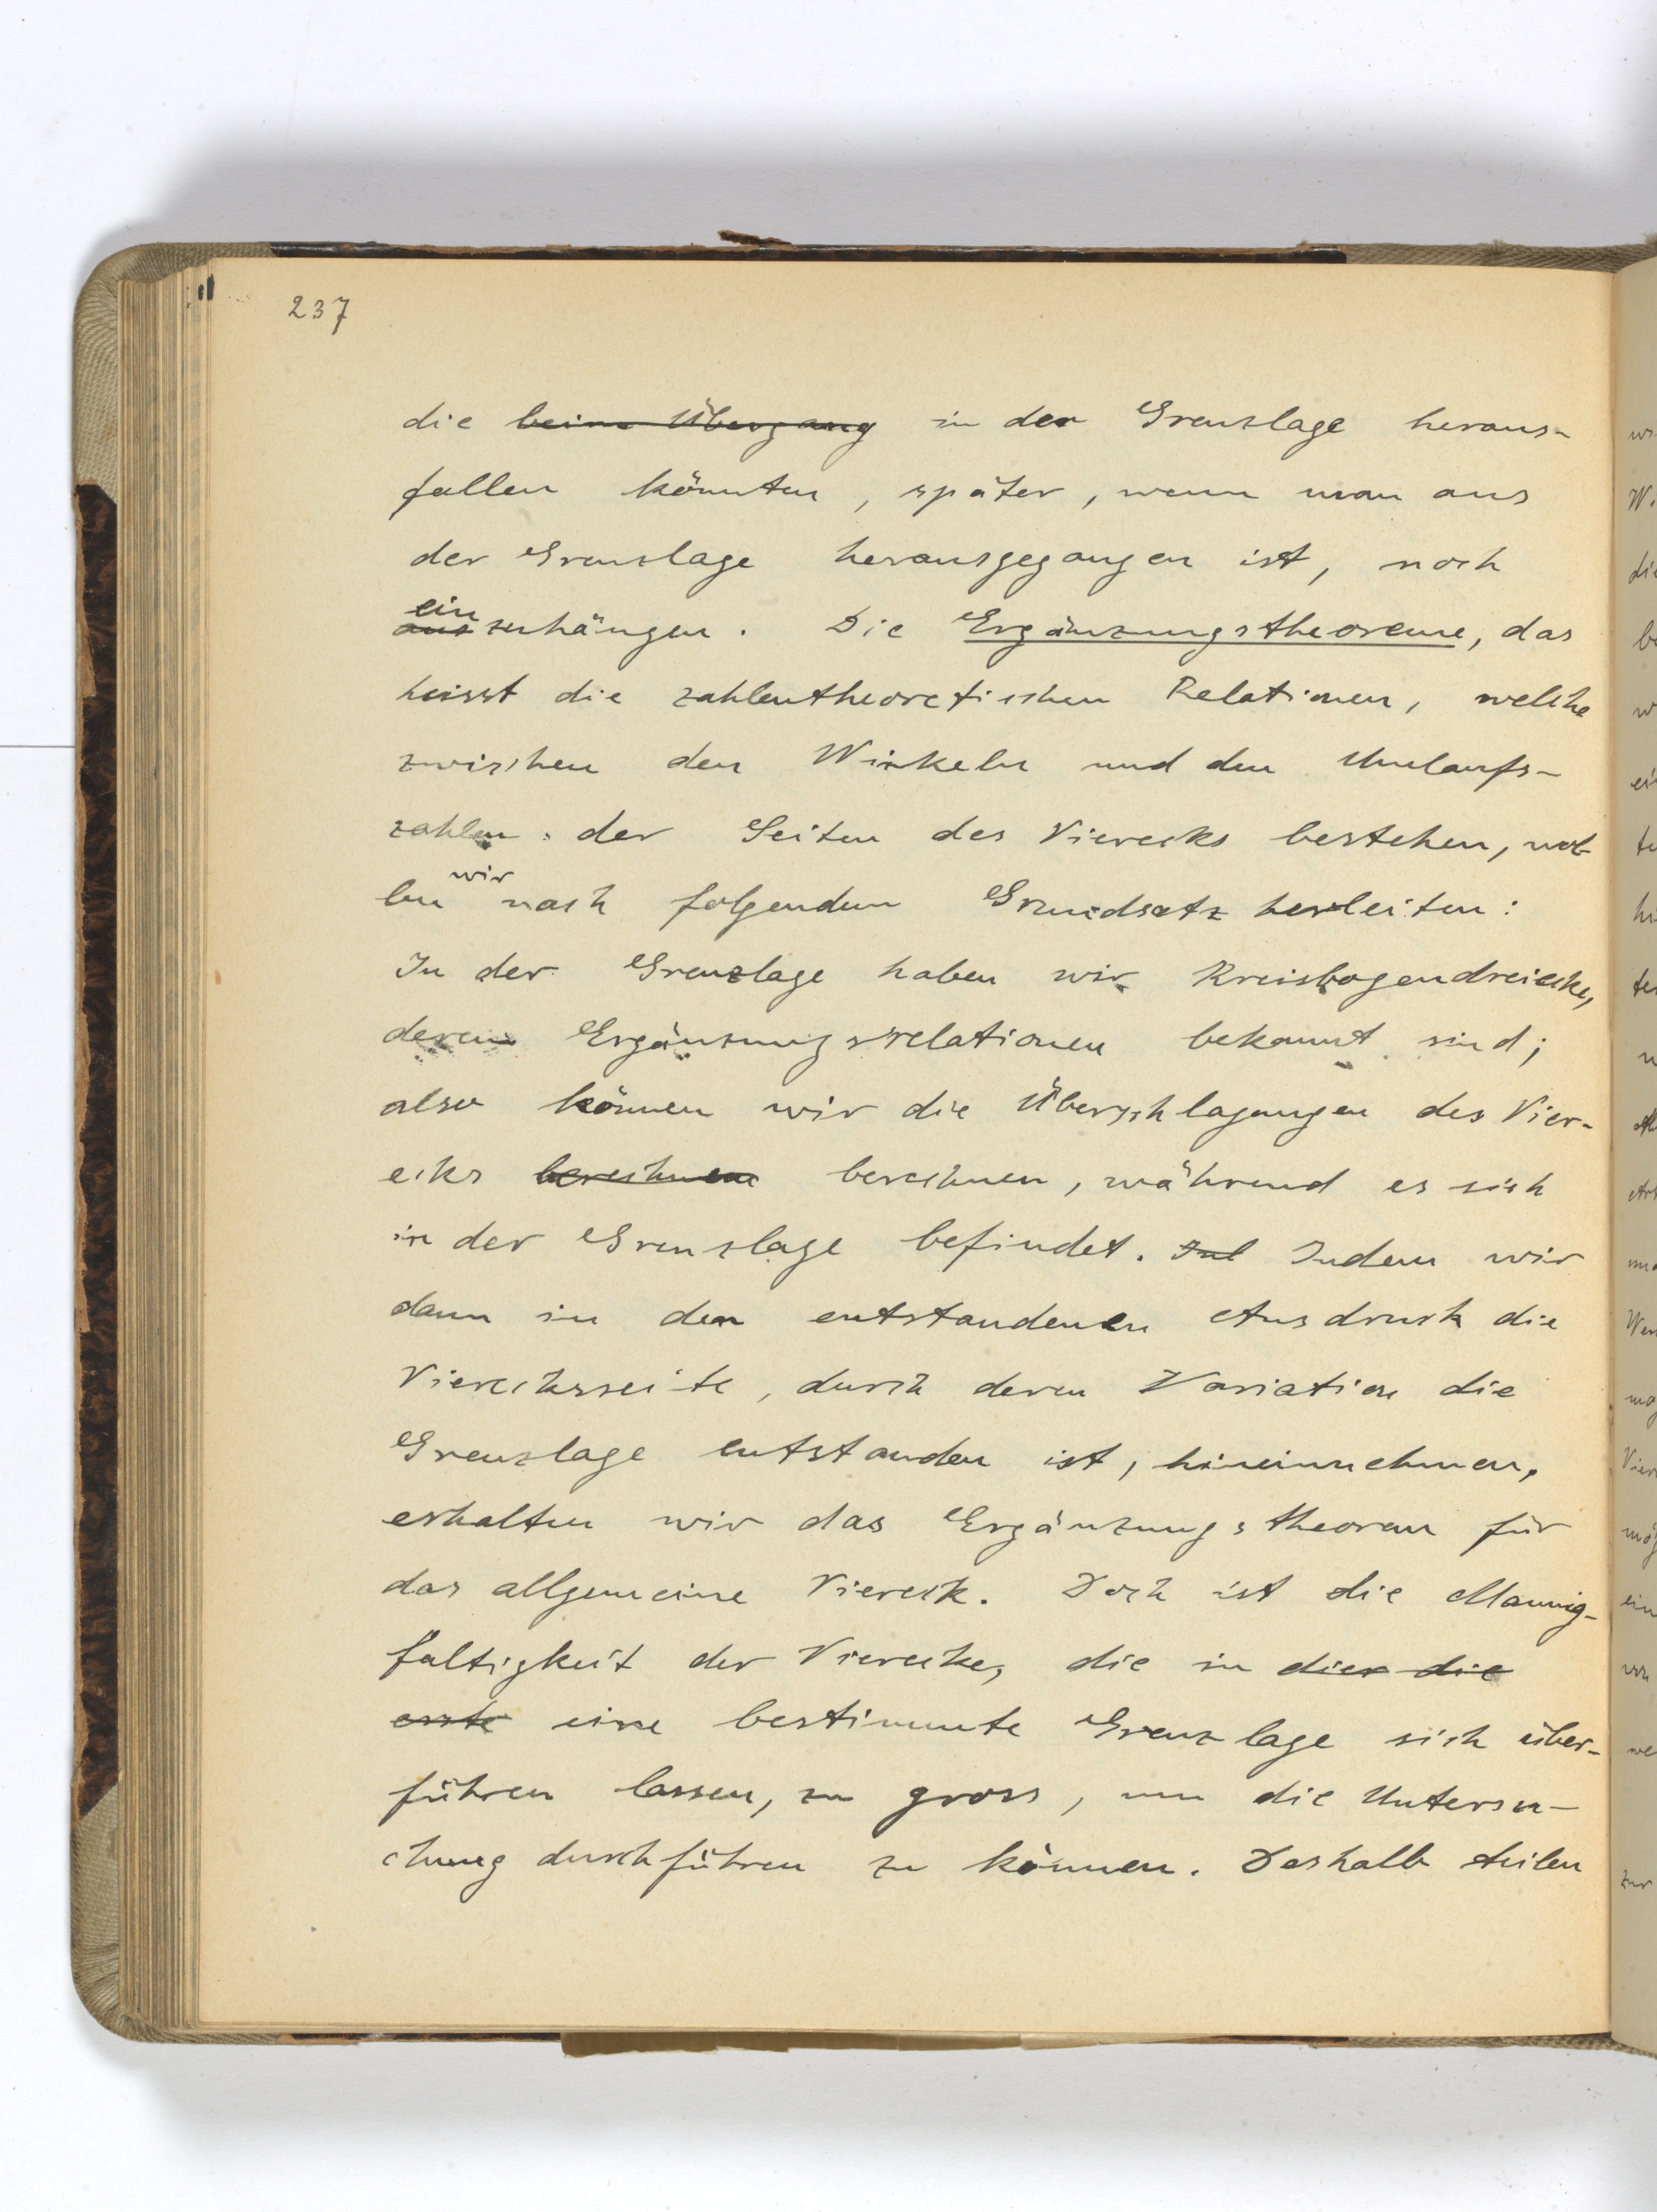 237
die beim Übergang in der Grenzlage heraus-
fallen könnten, später, wenn man aus
der Grenzlage herausgegangen ist, noch
ein
auszuhängen. Die Ergänzungstheoreme, das
heisst die zahlentheoretischen Relationen, welche
zwischen den Winkeln und den Umlaufs-
zahlen der Seiten des Vierecks bestehen, wol-
wir
len nach folgendem Grundsatz herleiten:
In der Grenzlage haben wir Kreisbogendreiecke,
deren Ergänzungsrelationen bekannt sind;
also können wir die Überschlagungen des Vier-
ecks berechnen berechnen, während es sich
in der Grenzlage befindet. Ind Indem wir
dann in den entstandenen Ausdruck die
Vierecksseite, durch deren Variation die
Grenzlage entstanden ist, hineinnehmen,
erhalten wir das Ergänzungstheorem für
das allgemeine Viereck. Doch ist die Mannig-
faltigkeit der Vierecke, die in dies die
erste eine bestimmte Grenzlage sich über-
führen lassen, zu gross, um die Untersu-
chung durchführen zu können. Deshalb teilen